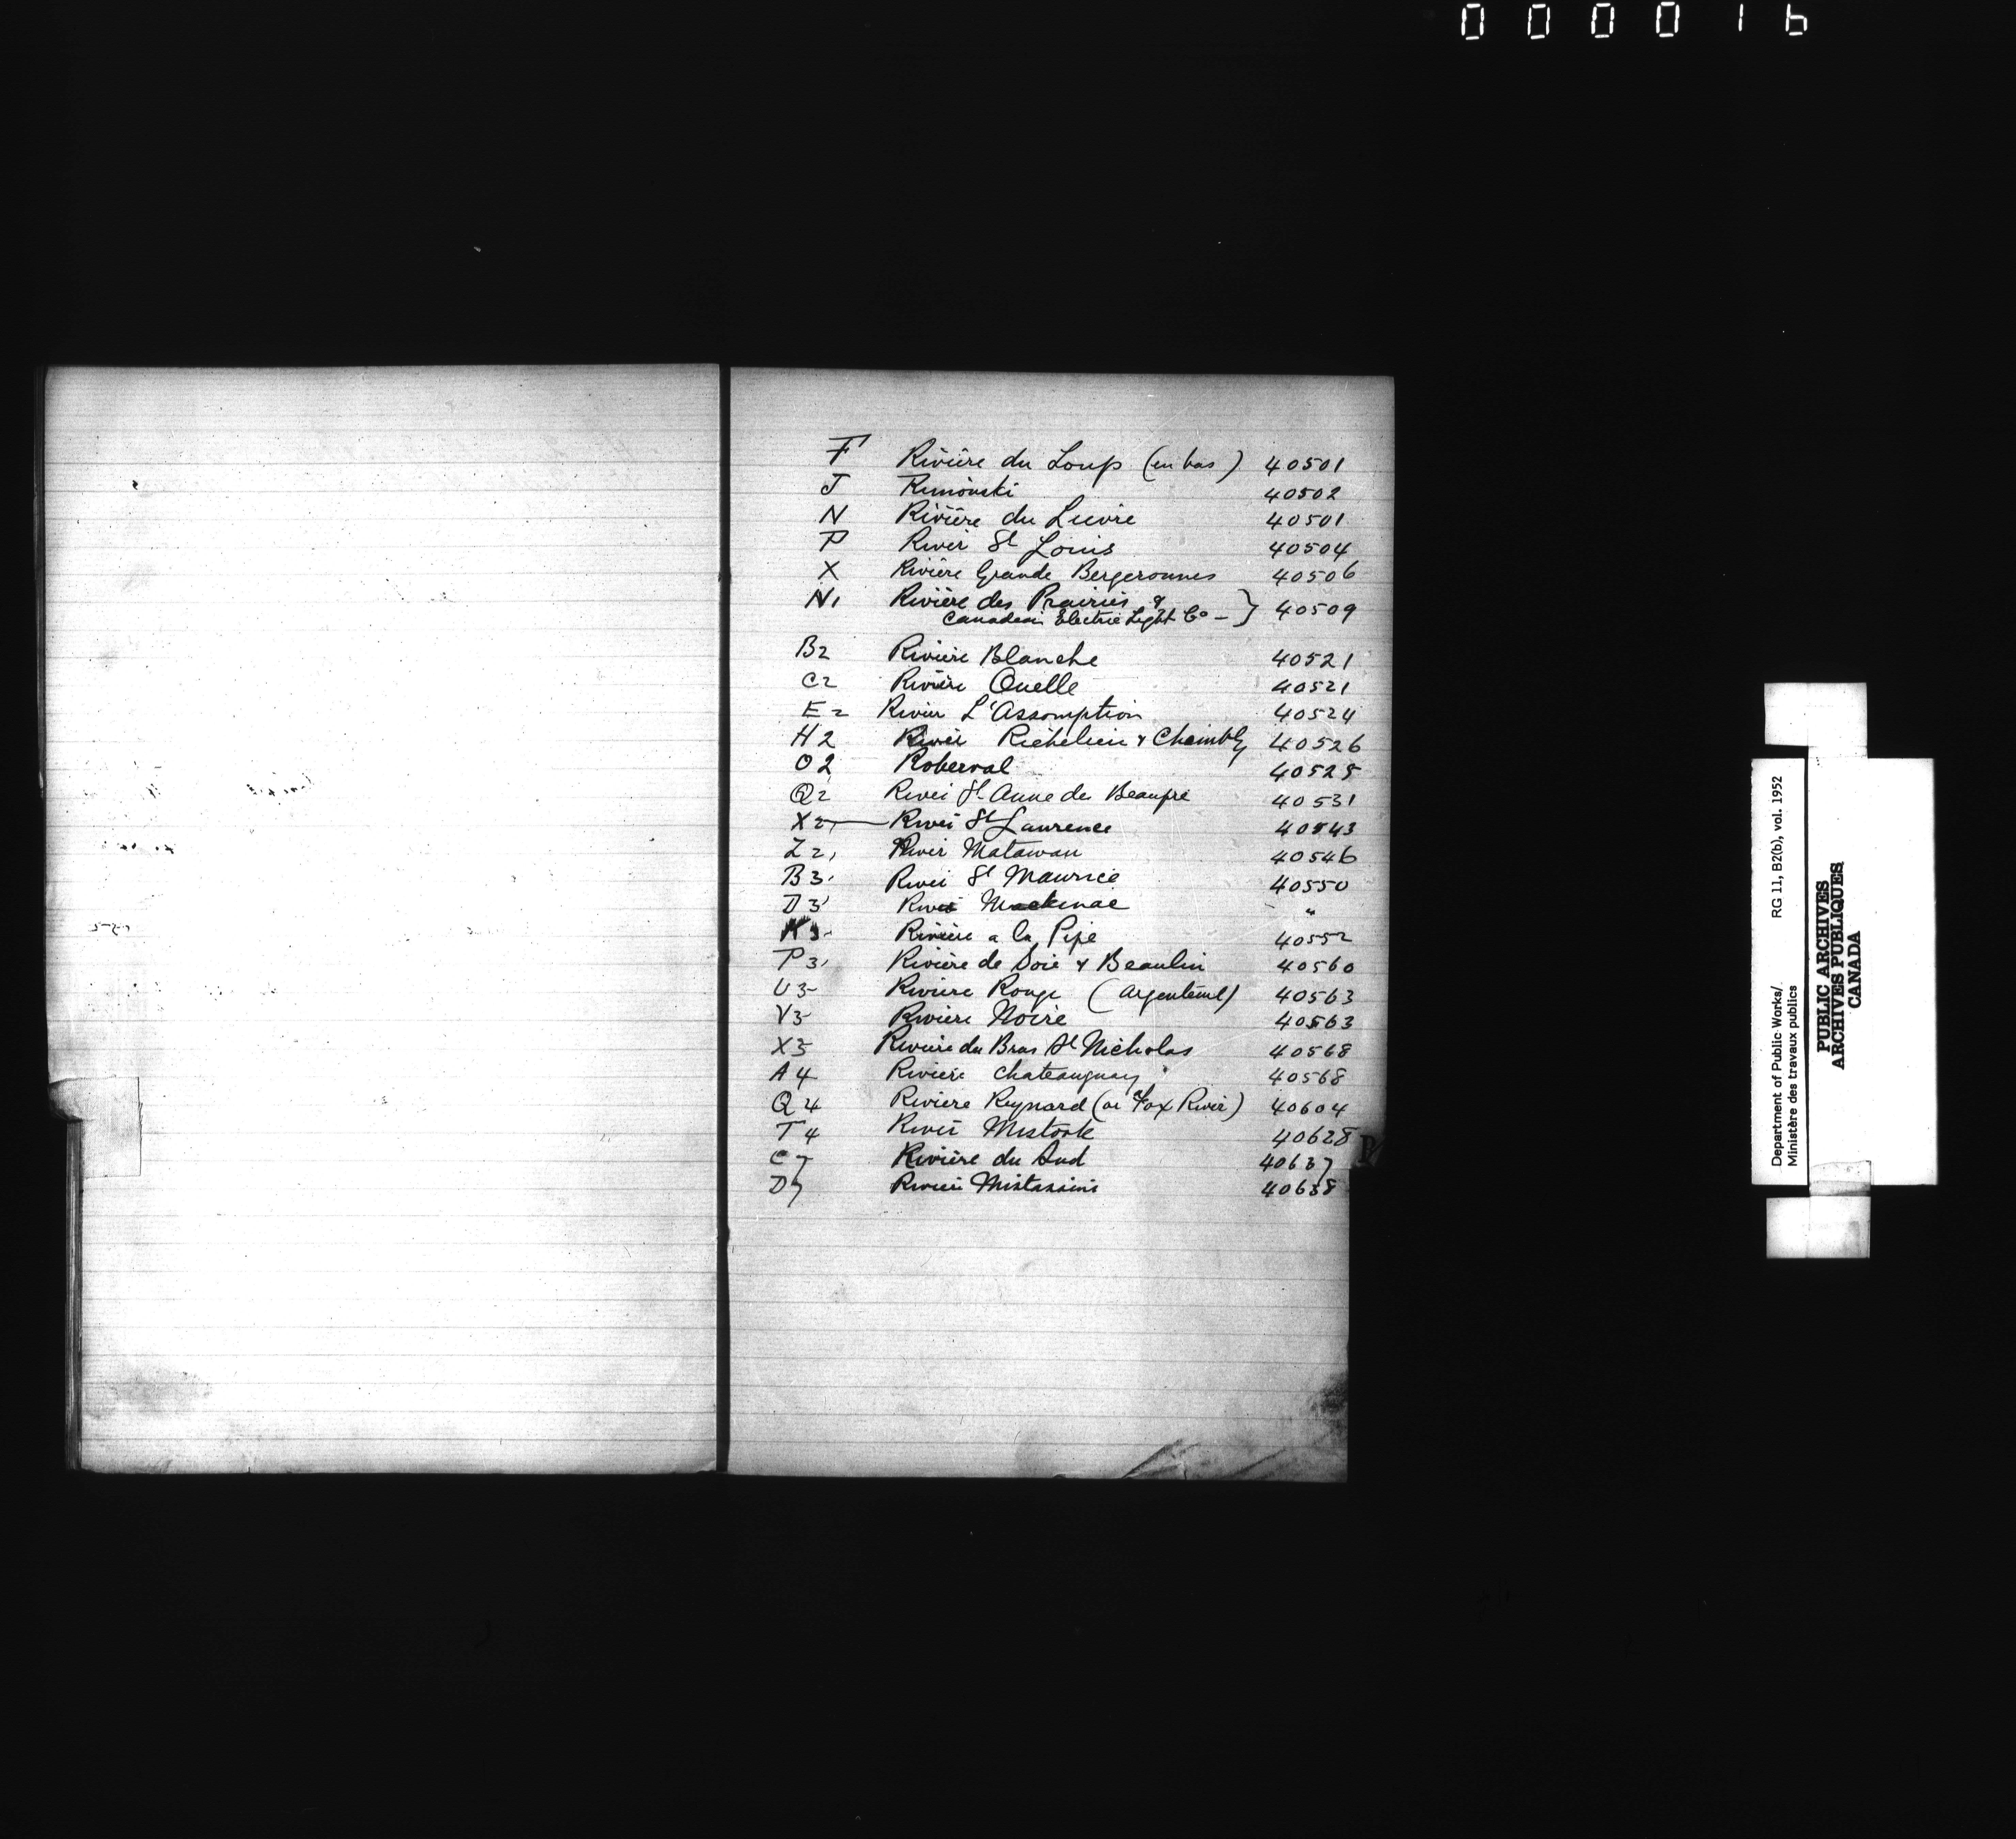 000016
F Rivière du Loup (en bas) 40501
J Rimouski 40502
N Rivière du Lievre 40501
P River St Louis 40504
X Rivière Grande Bergeronnes 40506
N1 Rivière des Prairies & } 40509
Canadian Electric Light Co –
B2 Rivière Blanche 40521
C2 Rivière Ouelle 40521
E2 River L'Assomption 40524
H2 River Richelieu & Chambly 40526
O2 Roberval 40528
Q2 River St Anne de Beaupré 40531
X2, River St Laurence 40543
Z2, River Matawan 40546
B3, River St Maurice 40550
D3 River Mackinac "
K3 Rivière a la Pipe 40552
P3, Rivière de Soie & Beaulin 40560
U3 Riviere Rouge (Argenteuil) 40563
V3 Riviere Noire 40563
X3 Riviere du Bras St Nicholas 40568
A4 Riviere Chateauguay 40568
Q4 Riviere Reynard (or Fox River) 40604
T4 River Mistook 40628
C7 Rivière du Sud 40637
D7 River Mistassini 40638
R
Department of Public Works/ RG 11, B2(b), vol. 1952
Ministère des travaux publics
PUBLIC ARCHIVES
ARCHIVES PUBLIQUES
CANADA